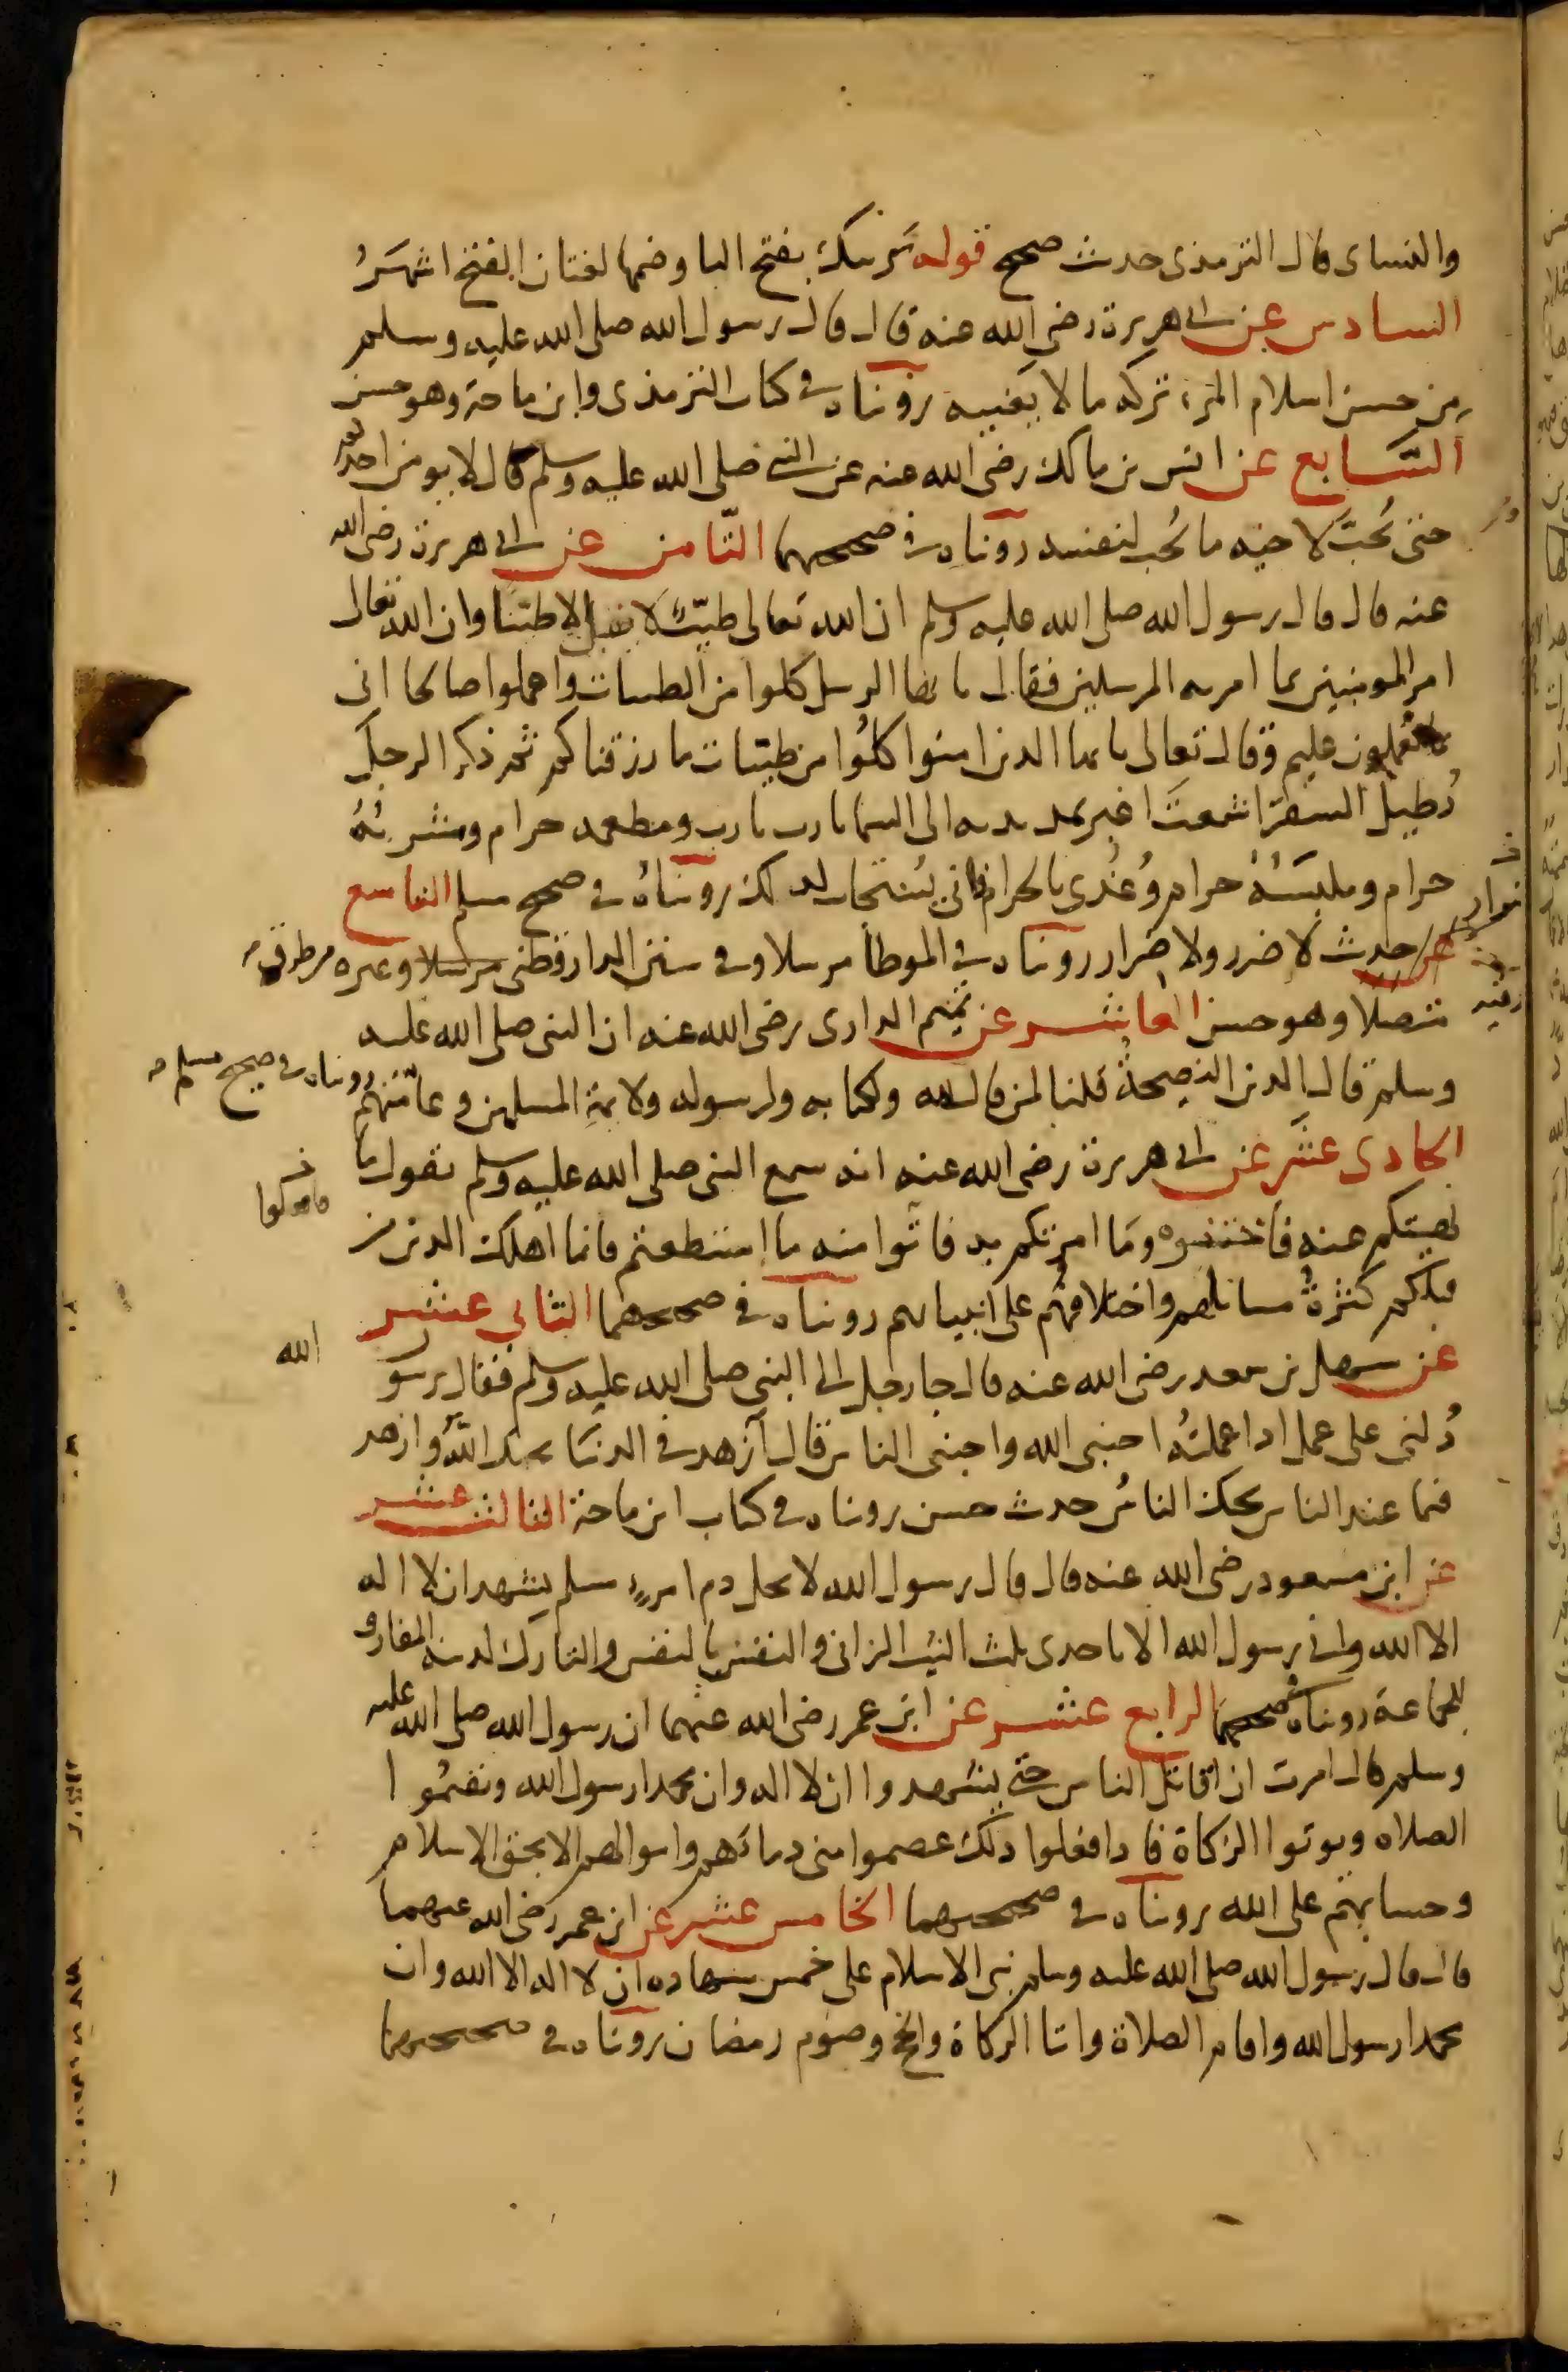 والنساى قال الترمذى حدىث صحيح قوله يَرىبك بفتح اليا وضمها لغتان الفتح اشهَرُ
السادس عن ابى هريرة رضى الله عنه قال قال رسول الله صلى الله عليه وسلم
من حسن اسلام المرء تركه ما لا يعنيه رويناه فى كتاب الترمذى وابن ماجة وهو حسن
السَّابع عن انس بن مالك رضى الله عنه عن النبى صلى الله عليه وسلم قال لا يومن احدكم
حتى يُحبَّ لاخيه ما يُحب لنفسه رويناه فى صحيحيهما الثّامن عن ابى هريرة رضى الله
عنه قال قال رسول الله صلى الله عليه وسلم ان الله تعالى طيّبٌ لا يقبل الا طيّبًا وان الله تعالى
امر المومنين بما امر به المرسلين فقال يا ايها الرسل كلوا من الطيبات واعملوا صالحا انى
بما تعملون عليم وقال تعالى يا ايها الذين امنوا كلُوا من طيّبات ما رزقناكم ثم ذكر الرجل
يُطيل السفرَ اشعثَ اغبر يمد يديه الى السما يا رب يا رب ومطعمه حرام ومشربُهُ
حرام وملبسَهُ حرام وغُذى بالحرام فانى يُستجاب لذلك رويناهُ فى صحيح مسلم التاسع
عن حديث لا ضرر ولا ضرار رويناه فى الموطأ مرسلا وفى سنن الدارقطنى مرسلا وغيره من طرق
متصلا وهو حسن العاشر عن تميم الدارى رضى الله عنه ان النبى صلى الله عليه
وسلم قال الدين النصيحةُ قلنا لمن قال لله ولكتابه ولرسوله ولايمةِ المسلمين وعامّتهم
رويناه فى صحيح مسلم
الحادى عشَر عن ابى هريرة رضى الله عنه انه سمع النبى صلى الله عليه وسلم يقول ما
نهيتكم عنه فاجتنبوه ومَا امرتكم به فاتوا منه ما استطعتم فانما اهلك الذين من
قبلكم كثرةُ مسائلهم واختلافهُم على انبيائهم رويناه فى صحيحيهما الثانى عشر
عن سهل بن سعد رضى الله عنه قال جا رجل الى النبى صلى الله عليه وسلم فقال يرسو
الله
دُلنى على عمل اذا عملتُه احبنى الله واحبنى الناس قال ازهد فى الدنيَا يحبك اللهُ وازهد
فيما عند الناس يحبك الناسُ حديث حسن رويناه فى كتاب ابن ماجة الثالث عشر
عن ابن مسعود رضى الله عنه قال قال رسول الله لا يحل دم امرءٍ مسلم يشهد ان لا اله
الا الله وانى رسول الله الا باحدى ثلث الثيب الزانى والنفس بالنفس والتارك لدينه المفارق
للجماعة رويناه فى صحيحيهما الرابع عشر عن ابن عمر رضى الله عنهما ان رسول الله صلى الله عليه
وسلم قال امرت ان اقاتل الناس حتى يشهدوا ان لا اله وان محمدا رسول الله ويقيمُوا
الصلاه ويوتوا الزكاة فاذا فعلوا ذلك عصموا منى دماءَهم واموالهم الا بحق الاسلام
وحسابهم على الله رويناه فى صحيحيهما الخامس عشر عن ابن عمر رضى الله عنهما
قال قال رسول الله صلى الله عليه وسلم بنى الاسلام على خمس شهاده ان لا اله الا الله وان
محمدا رسول الله واقام الصلاة وايتا الزكاة والحج وصوم رمضان رويناه فى صحيحيهما